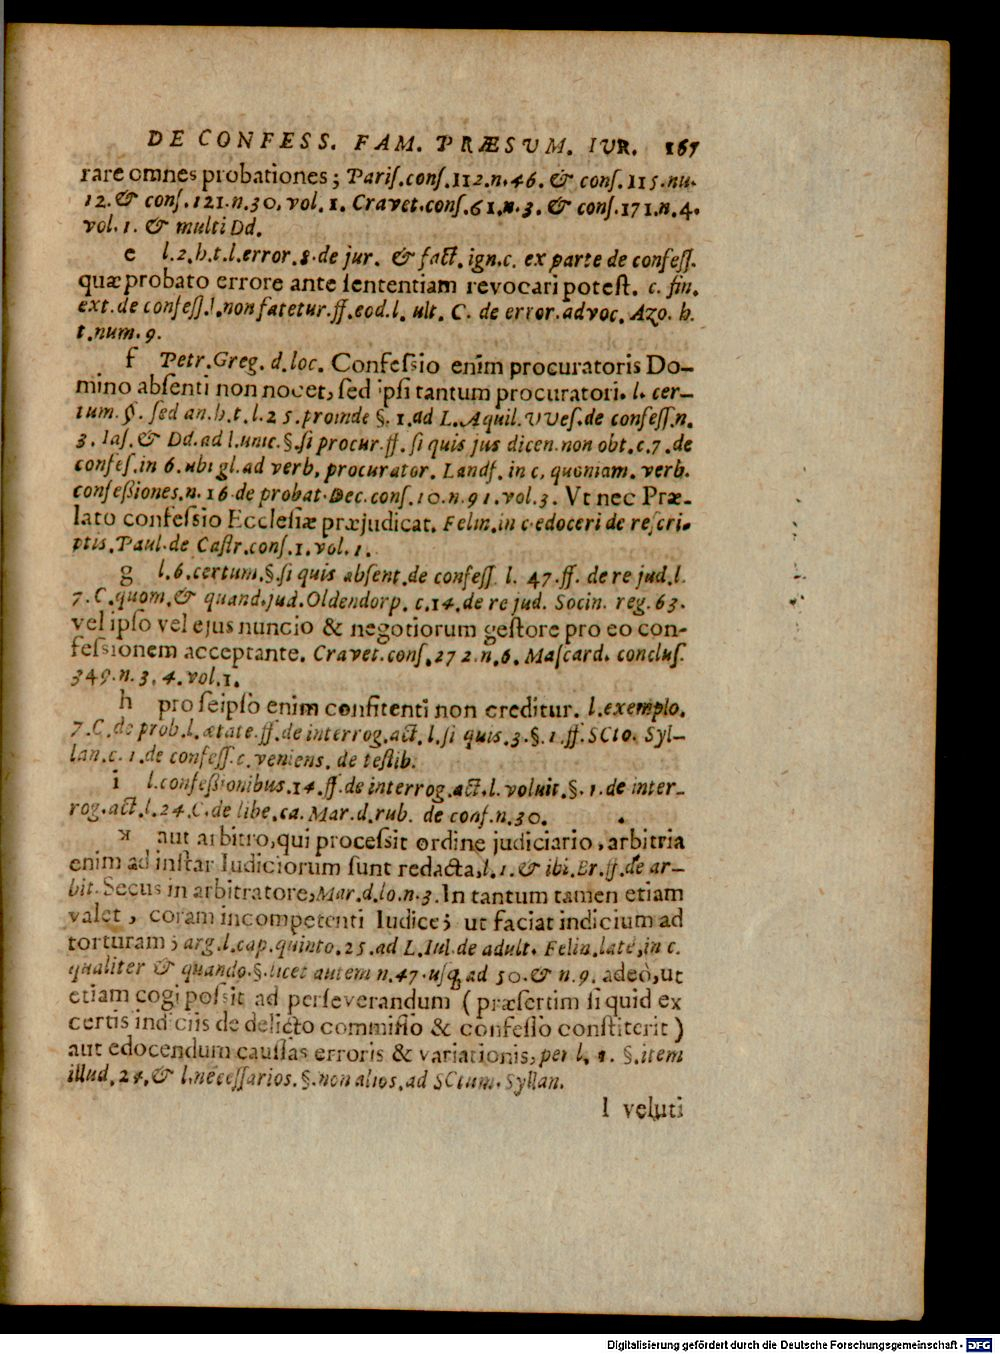 DE CONFESS. FAM. PRÆSUM. IUR. 167
rare omnes probationes; Pariſ.conſ.112.n.46. & conſ.115.nu.
12.& conſ.121.n.30.vol.1. Cravet.conſ.61.n.3. & conſ.171.n.4.
vol.1. & multi Dd.
e l.2.h.t.l.error.8.de jur. & fact.ign.c. ex parte de confeſſ.
quæ probato errore ante ſententiam revocari poteſt. c. fin.
ext.de confeſſ.l.non fatetur.ff.eod.l. ult. C. de error.advoc. Azo. h.
t.num.9.
f Petr.Greg. d.loc. Confeſsio enim procuratoris Do-
mino abſenti non nocet, ſed ipſi tantum procuratori. l. cer-
tum.§. ſed an.h.t.l.25.proinde §.1.ad L.Aquil.VVeſ.de confeſſ.n.
3. Iaſ.& Dd.ad l.unic.§.ſi procur.ff. ſi quis jus dicen.non obt.c.7.de
confeſ.in 6.ubi gl.ad verb.procurator. Landf. in c. quoniam. verb.
confeßiones.n.16.de probat.Dec.conſ.10.n.91.vol.3. Vt nec Præ-
lato confeſsio Eccleſiæ præjudicat. Felin.in c.edoceri de reſcri-
ptis.Paul.de Caſtr.conſ.1.vol.1.
g l.6.certum.§.ſi quis abſent.de confeſſ. l. 47.ff. de re jud.l.
7.C.quom.& quand.jud.Oldendorp. c.14.de re jud. Socin. reg.63.
vel ipſo vel ejus nuncio & negotiorum geſtore pro eo con-
feſsionem acceptante. Cravet.conſ.272.n.6. Maſcard. concluſ.
349.n.3.4.vol.1.
h pro ſeipſo enim confitenti non creditur. l.exemplo.
7.C.de prob.l.ætate.ff.de interrog.act.l.ſi quis.3.§.1.ff.SCto. Syl-
lan.c.1.de confeſſ.c.veniens. de teſtib.
i l.confeßionibus.14.ff.de interrog.act.l.voluit.§.1.de inter-
rog.act.l.24.C.de libe.ca.Mar.d.rub. de conf.n.30.
k aut arbitro, qui proceſsit ordine judiciario, arbitria
enim ad inſtar Iudiciorum ſunt redacta, l.1.& ibi.Br.ff.de ar-
bit. Secus in arbitratore, Mar.d.lo.n.3. In tantum tamen etiam
valet, coram incompetenti Iudice; ut faciat indicium ad
torturam; arg.l.cap.quinto.25.ad L.Iul.de adult. Felin.latè, in c.
qualiter & quando.§.licet autem n.47.uſq; ad 50.& n.9. adeò, ut
etiam cogi poſsit ad perſeverandum (præſertim ſi quid ex
certis indiciis de delicto commiſſo & confeſſo conſtiterit)
aut edocendum cauſſas erroris & variationis, per l. 1. §.item
illud.24.& l.neceſſarios.§.non alios.ad SCtum.Syllan.
l veluti
Digitalisierung gefördert durch die Deutsche Forschungsgemeinschaft - DFG